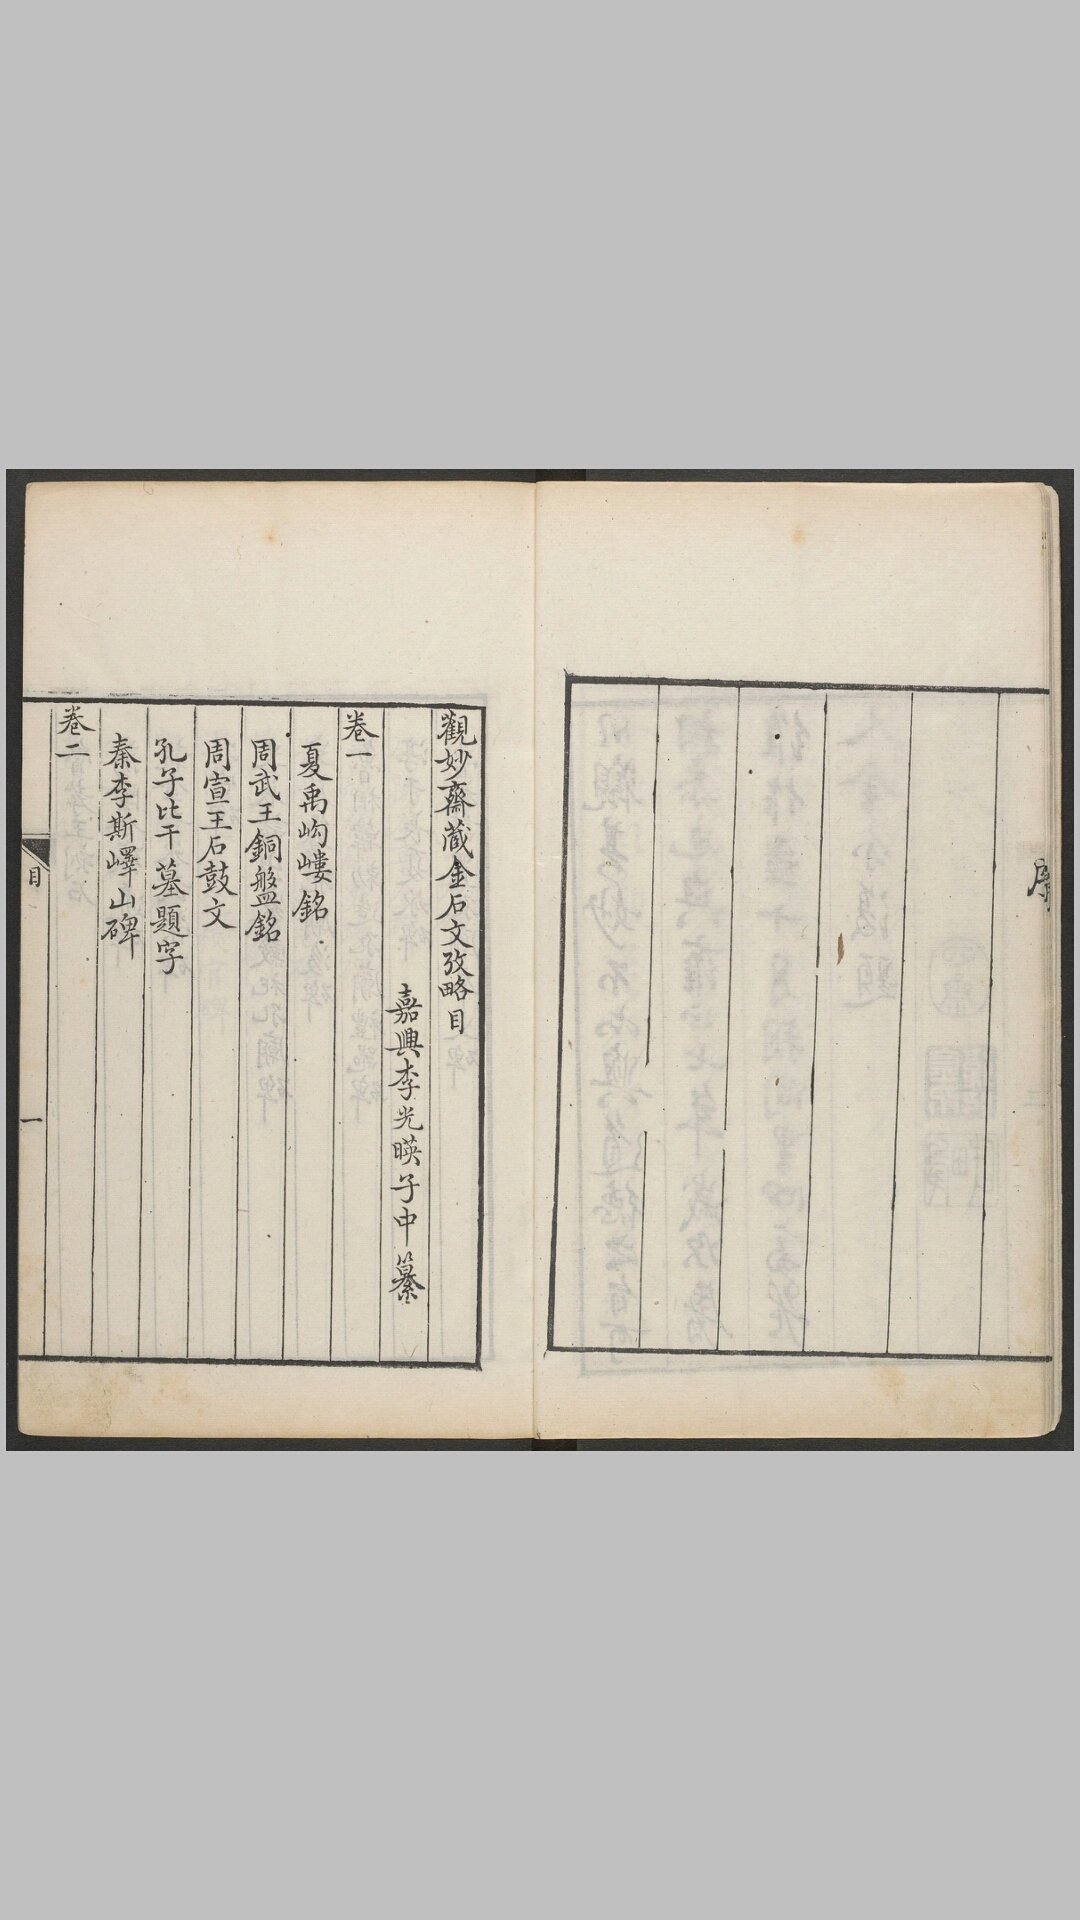 序
觀妙齋藏金石文攷略目
嘉興李光暎子中纂
卷一
夏禹岣嶁銘
周武王銅盤銘
周宣王石鼓文
孔子比干墓題字
秦李斯嶧山碑
卷二
目
一